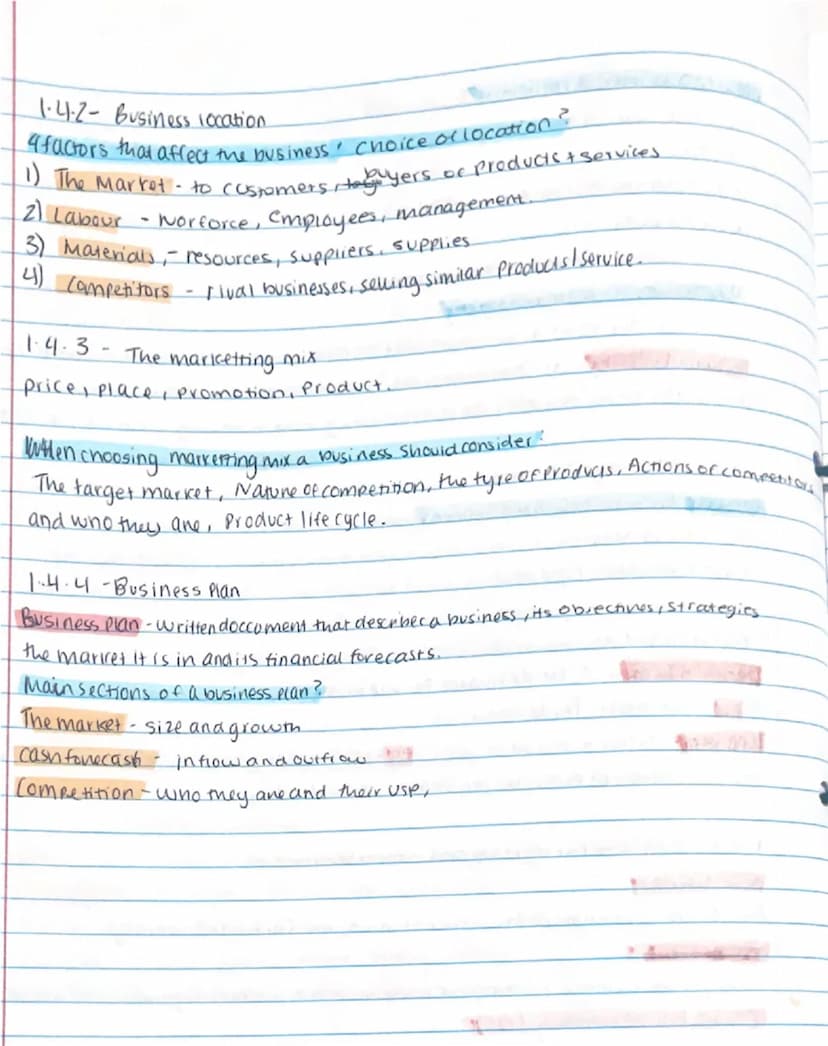 1.4.2- Business location
4 factors that affect the business' choice of location?
1) The Market - to customers, buyers of products + services
2) Labour - Worforce, Employees, management.
3) Materials, - resources, suppliers, supplies
4) Competitors - rival businesses, selling similar products/service.
1.4.3 - The marketting mix
price, place, promotion, product.
When choosing marketting mix a business should consider:
The target market, Nature of competition, the type of products, Actions of competitors,
and who they are, Product life cycle.
1.4.4 - Business Plan
Business plan - written doccument that describec a business, its objectives, strategies
the market it is in and its financial forecasts.
Main sections of a business plan?
The market - size and growth
cash forecash - inflow and outflow
Competition - who they are and their USP,